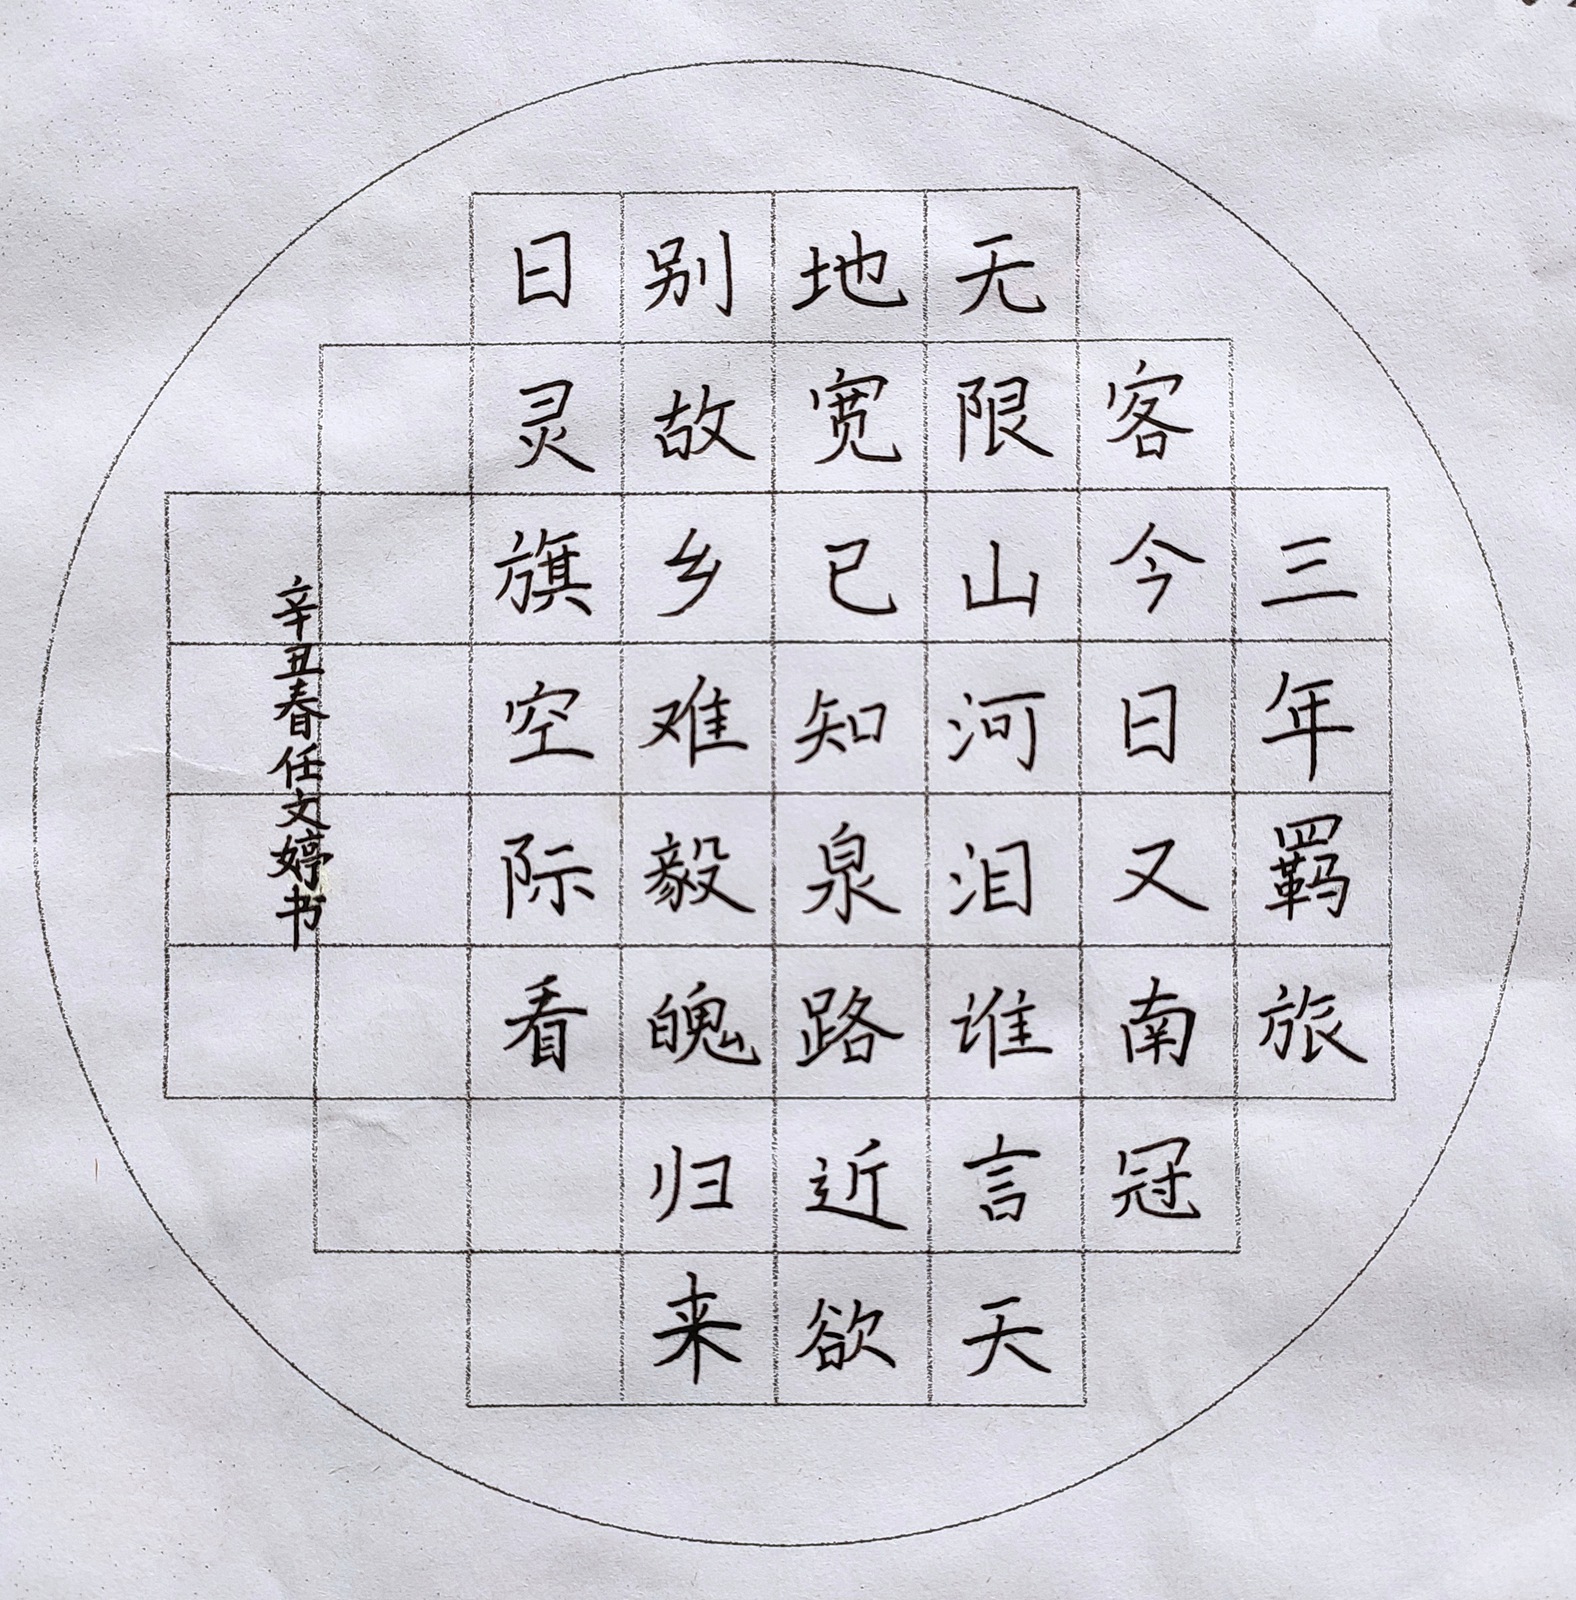 三年羁旅
客今日又南冠
无限山河泪谁言天
地宽已知泉路近欲
别故乡难毅魄归来
日灵旗空际看
辛丑春任文婷书